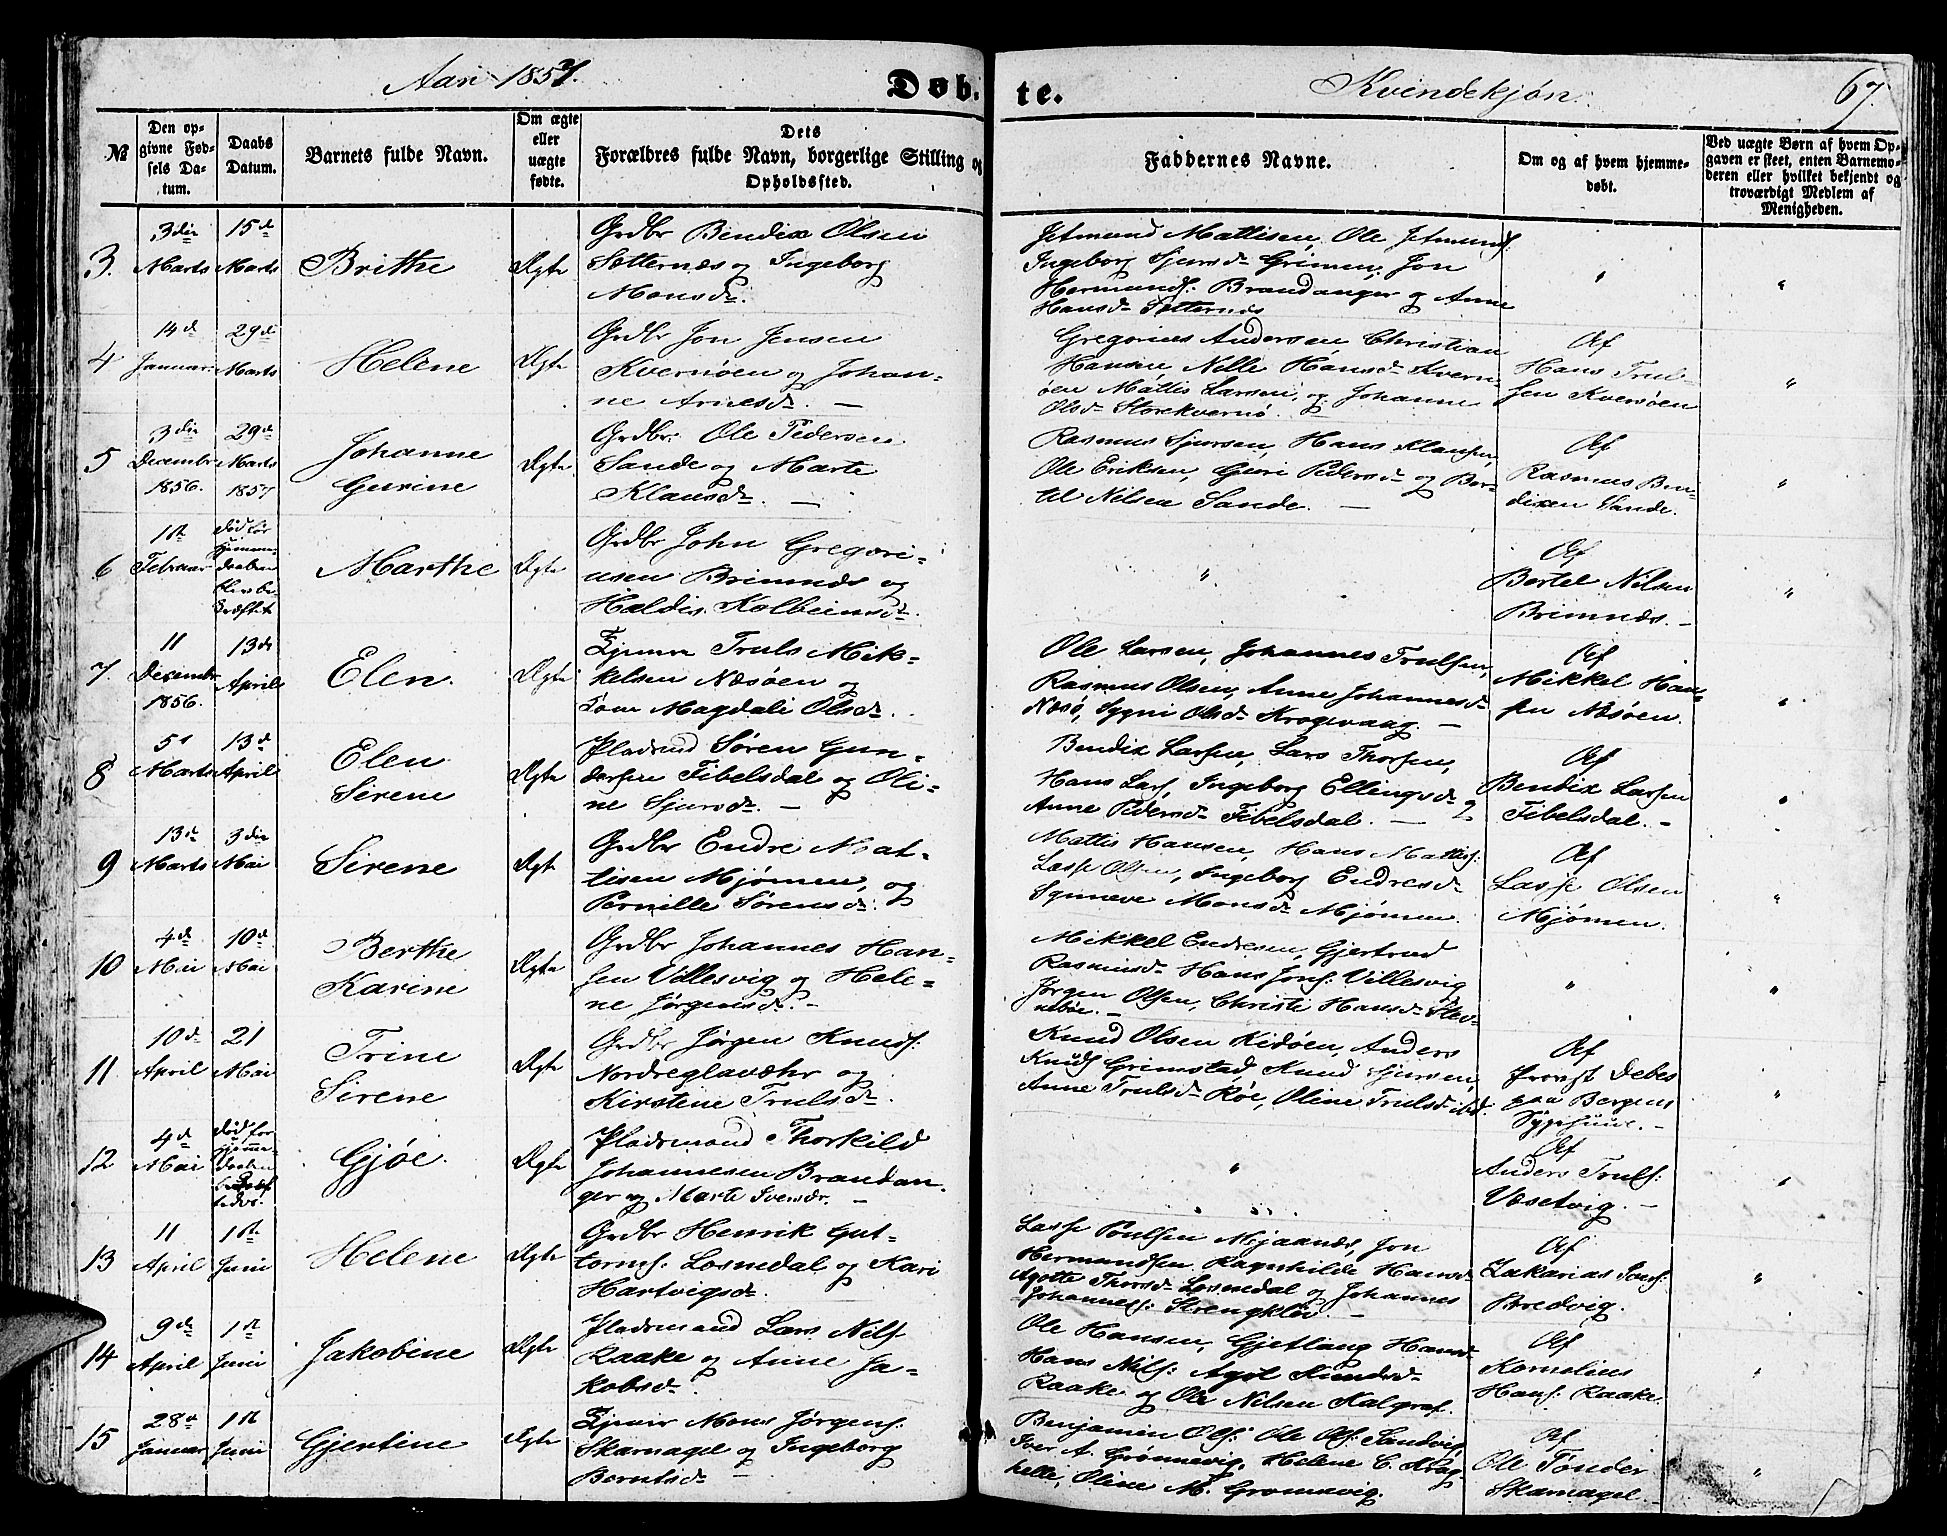 Aar 1857.
Døb-
te.
Kvindekjøn.
67
№
Den op-
givne Fød-
sels Da-
tum.
Daabs
Datum.
Barnets fulde Navn.
Om ægte
eller
uægte
fødte.
Dets
Forældres fulde Navn, borgerlige Stilling og
Opholdssted.
Faddernes Navne.
Om og af hvem hjemme-
døbt.
Ved uægte Børn af hvem Op-
gaven er skeet, enten Barnemo-
deren eller hvilket bekjendt og
troværdigt Medlem af
Menigheden.
3.
3die
Marts
15de
Marts
Brithe
Ægte
Grdbr Bendix Olsen
Sætternæs og Ingeborg
Monsdr.
Jetmund Mattisen, Ole Jetmunds:
Ingeborg Sjursdr Grimen, Jon
Hermunds: Brandanger og Anne
Hansdr Sætternæs
"
"
4
14de
Januar
29de
Marts
Helene
Ægte
Grdbr Jon Jensen
Kvernøen og Johan-
ne Arnesdr. —
Gregorius Andersen Christian
Hansen, Nille Hansdr Kvern-
øen Mattis Larsen, og Johanne
Olsdr Storekvernø.
Af
Hans Trul-
sen Kvernøen
"
5
3die
Decembr
1856.
29de
Marts
1857
Johanne
Gurine
Ægte
Grdbr. Ole Pedersen
Sande og Marte
Klausdr. —
Rasmus Sjursen, Hans Klausen,
Ole Eriksen, Guri Pedersdr og Ber-
tel Nilsen Sande. —
Af
Rasmus Ben-
dixen Sande.
"
6
1te
Februar
død før
hjemme-
daaben
blev be-
kræftet
Marthe
Ægte
Grdbr John Gregori-
usen Brimnæs og
Haldis Kolbeinsdr.
"
Af
Bertel Nilsen
Brimnæs. —
"
7.
11
Decembr
1856.
13de
April
Elen.
Ægte
Truls Mik-
kelsen Næsøen og
Magdali Olsdr.
Ole Larsen, Johannes Trulsen,
Rasmus Olsen, Anne Johannesdr
Næsø, Sygni Olsdr Krogevaag. —
Af
Mikkel Han-
sen Næsøen.
"
8
5te
Marts
13de
April
Elen
Sirene
Ægte
Pladsmd Søren Gun-
dersen Fibelsdal og Oli-
ne Sjursdr. —
Bendix Larsen, Lars Thorsen,
Hans Lars, Ingeborg Ellingsdr
Anne Pedersdr Fibelsdal. —
Af
Bendix Larsen
Fibelsdal. —
"
9
13de
Marts
3die
Mai
Sirene
Ægt
Grdbr Endre Mat-
tisen Mjømen, og
Pernille Sørensdr.
Mattis Hansen, Hans Mattis:
Lasse Olsen, Ingeborg Endresdr
Synneve Monsdr Mjømen.
Af
Lasse Olsen
Mjømen.
"
10
4de
Mai
10de
Mai
Berthe
Karine
Ægte
Grdbr Johannes Han-
sen Villesvig og Hele-
ne Jørgensdr. —
Mikkel Endresen, Gjertrud
Rasmusdr Hans Jons: Villesvig
Jørgen Olsen, Christi Hansdr Stev-
nebøe. —
"
"
11
10de
April
21
Mai
Trine
Sirene
Ægte
Grdbr Jørgen Knuds:
Nordreglavæhr og
Kirstine Trulsdr.
Knud Olsen Kidøen, Anders
Knuds Grimstad, Knud Sjursen,
Anne Trulsdr Røe, Oline Trulsdr ibd.
Af
Provst Debes
paa Bergens
Sygehuus. —
"
12
4de
Mai
død før
hjemme-
daaben
Gjøe.
Ægte
Pladsmand Thorkild
Johannesen Brandan-
ger og Marte Iversdr. —
"
Af
Anders Truls:
Væsetvig. —
"
13
11
April
1te
Juni
Helene
Ægte
Grdbr Henrik Gut-
torms: Losnedal og Kari
Hartvigsdr.
Lasse Poulsen Mjaanæs, Jon
Hermundsen, Ragnhilde Hansdr
Agotte Thorsdr Losnedal og Johannes
Johannes: Strengklev. —
Af
Zakarias Jons:
Bredvig.
"
14
9de
April
1te
Juni
Jakobine
Ægte
Pladsmand Lars Nils:
Raake og Anne Ja-
kobsdr.
Ole Hansen, Gjetlaug Hansdr
Hans Nils: Agot Knudsdr
Raake og Ole Nilsen Kalgraf.
Af
Kornelius
Hans: Raake.
"
15
28de
Januar
1te
Juni
Gjertine
Ægte
Mons Jørgens:
Skarnagel og Ingeborg
Berntsdr —
Benjamin Ols: Ole Ols: Sandvig,
Iver A. Grønnevig, Helene C. Krog-
helle, Oline M. Grønnevig.
Af
Ole Tønder
Skarnagel.
"